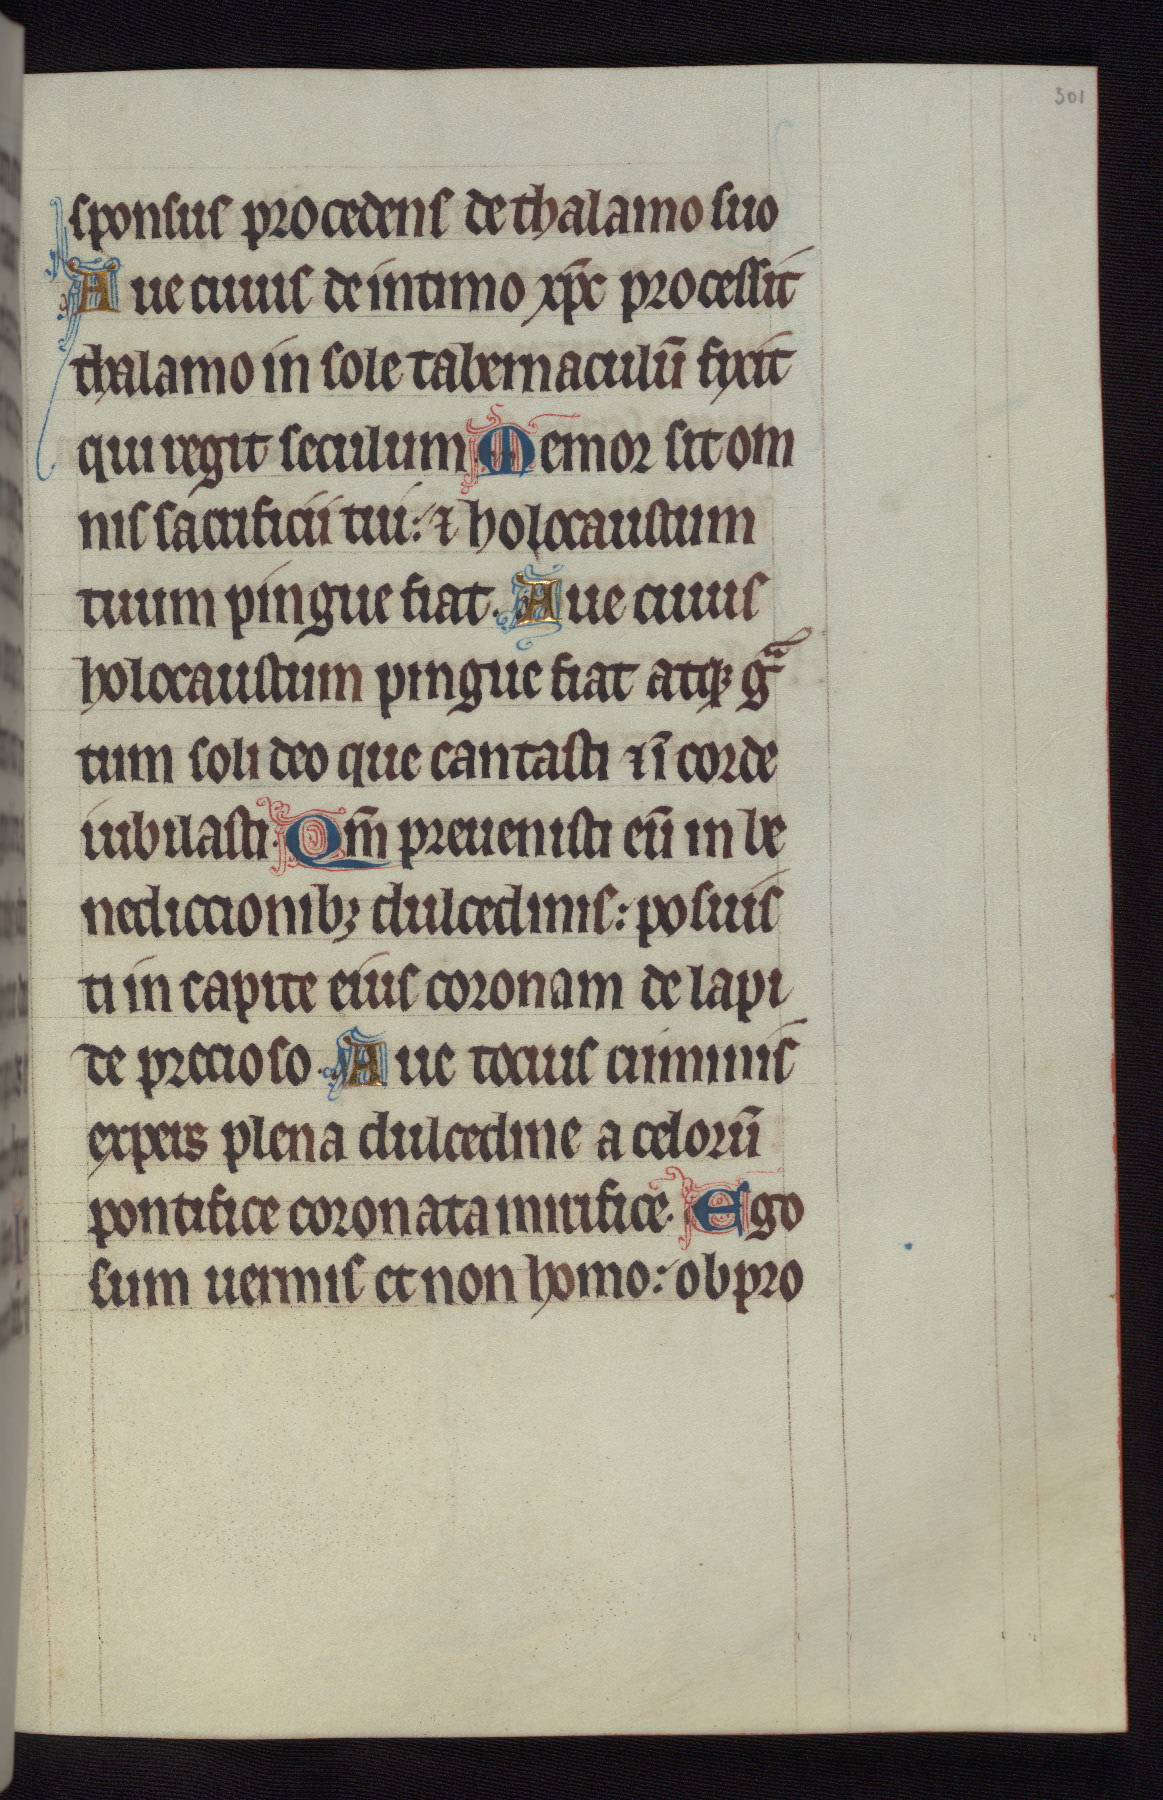 301
sponsus procedens de thalamo suo
Aue cuius de intimo xp̄c processit
thalamo in sole tabernaculū fixit
qui regit seculum Memor sit om
nis sacrificii tui: ⁊ holocaustum
tuum pingue fiat. Aue cuius
holocaustum pingue fiat atqꝫ gͣ
tum soli deo que cantasti ⁊ ī corde
iubilasti. Qm̄ preuenisti eū in be
nediccionibꝫ dulcedinis: posuis
ti in capite eius coronam de lapi
de precioso. Aue tocius criminis
expers plena dulcedine a celorū
pontifice coronata mirifice. Ego
sum uermis et non homo: obpro